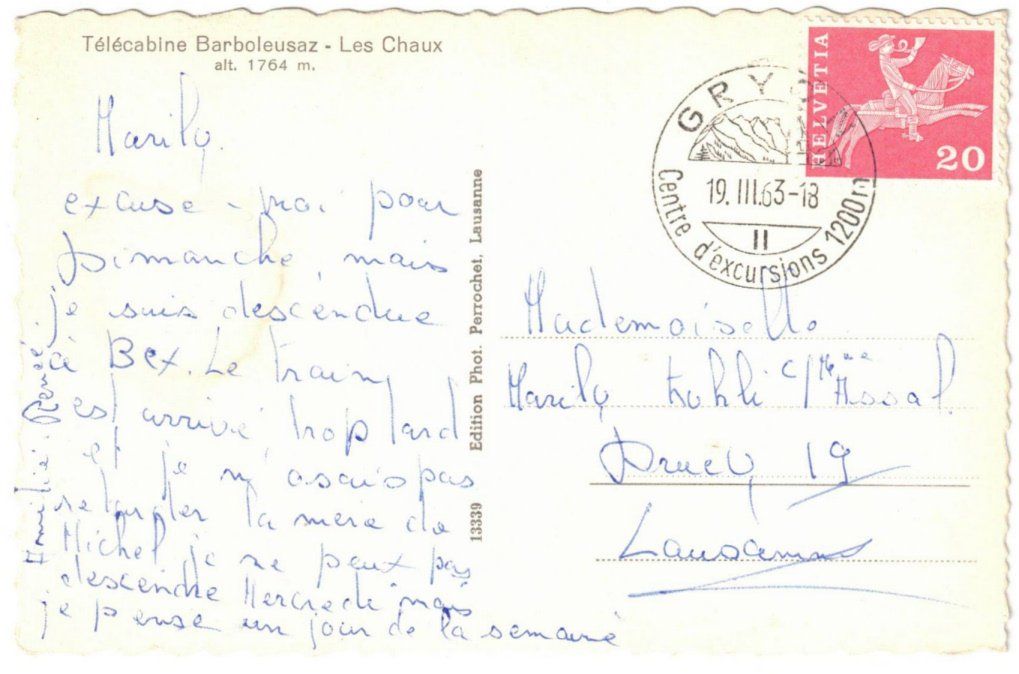 Télécabine Barboleusaz - Les Chaux
alt. 1764 m.
Marily
excuse-moi pour
Dimanche, mais
je suis descendue
à Bex. Le train
est arrivé trop tard
et je n'osais pas
retarder la mère de
Michel je ne peux pas
descendre Mercredi mais
je pense un jour de la semaine
Amitié. Renée.
13339 Edition Phot. Perrochet, Lausanne
GRYON
19. III.63-18
II
Centre d'excursions 1200m
HELVETIA
20
Mademoiselle
Marily Kohli c/Mme Assal
Druey 19
Lausanne